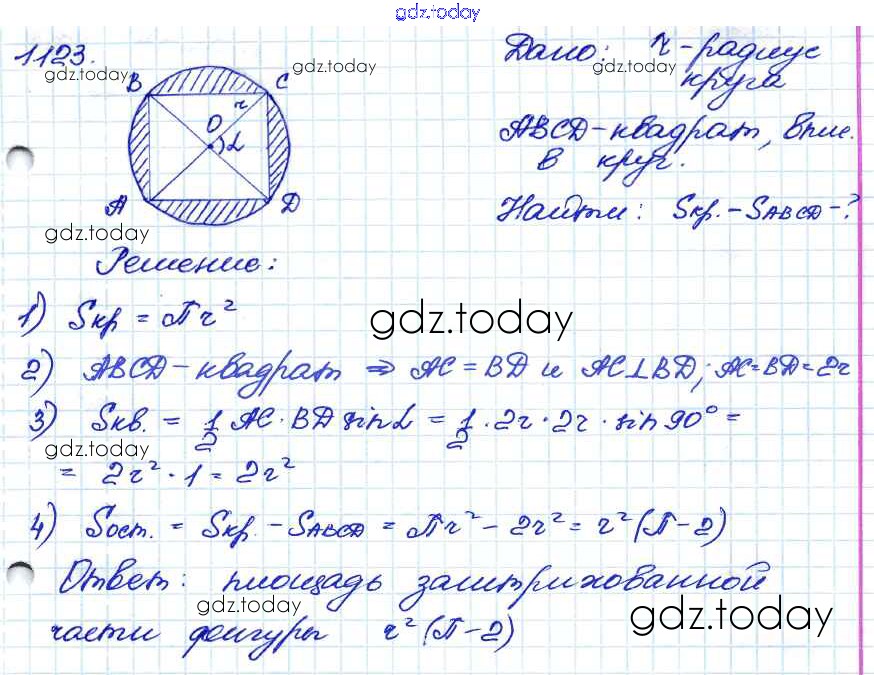 gdz.today
1123.
gdz.today
B C
r
O
α
A D
gdz.today
gdz.today
gdz.today
Дано: r-радиус
круга
ABCD-квадрат, впис.
в круг.
Найти: Sкр. - SABCD -?
Решение:
1) Sкр = πr²
gdz.today
2) ABCD-квадрат ⇒ AC = BD и AC⊥BD; AC=BD=2r
3) Sкв. = 1/2 AC · BD sin α = 1/2 · 2r · 2r · sin 90° =
gdz.today
= 2r² · 1 = 2r²
4) Sост. = Sкр. - SABCD = πr² - 2r² = r²(π-2)
Ответ: площадь заштрихованной
gdz.today
gdz.today
части фигуры r²(π-2)